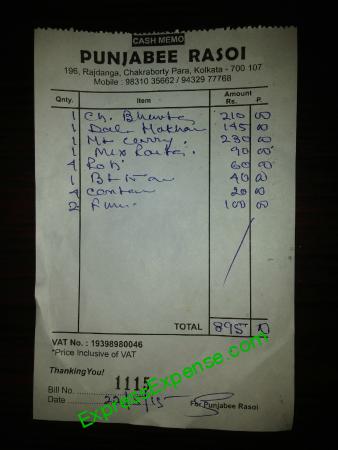 CASH MEMO
PUNJABEE RASOI
196, Rajdanga, Chakraborty Para, Kolkata - 700 107
Mobile : 98310 35662 / 94329 77768
Qnty. Item Amount
Rs. P.
1 Ch. 210 00
1 Dal 145 00
1 curry 230 00
1 Mix Raita 90 00
4 Roti 60 00
1 40 00
4 20 00
2 100 00
TOTAL 895 00
VAT No. : 19398980046
*Price Inclusive of VAT
ThankingYou!
Bill No. 1115
Date
For Punjabee Rasoi
ExpressExpense.com